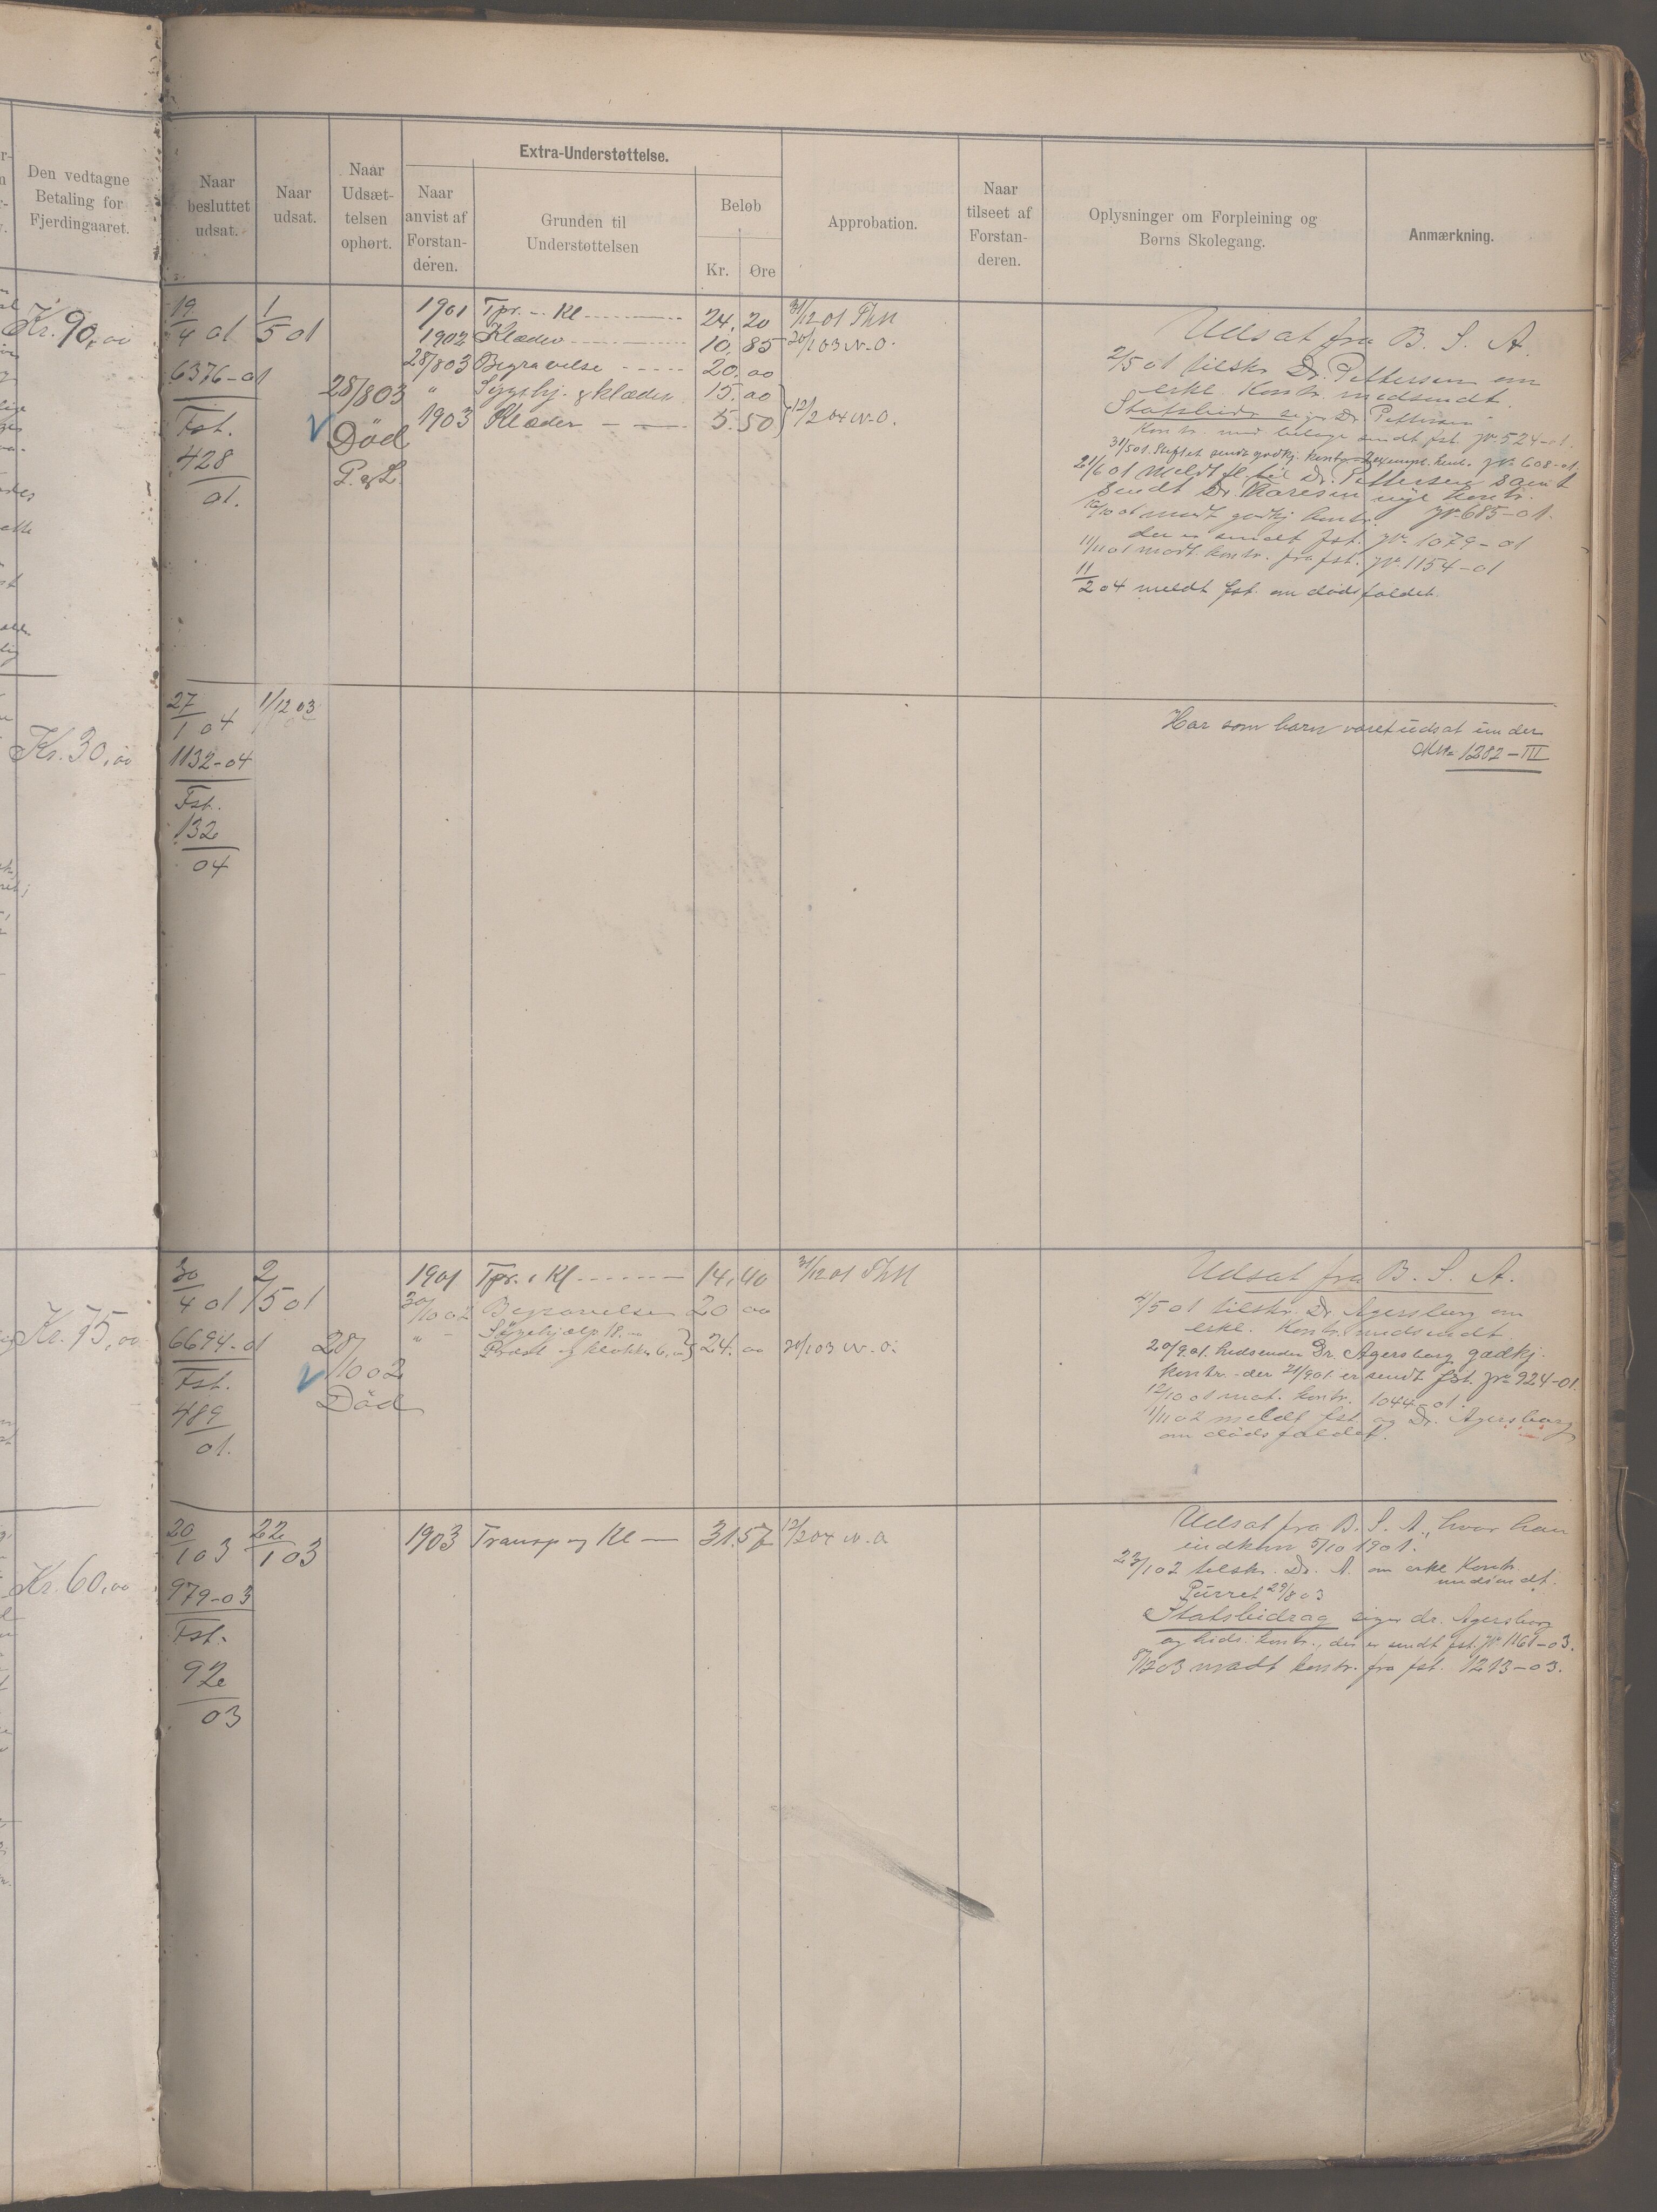 Den vedtagne
Betaling for
Fjerdingaaret.
Naar
besluttet
udsat.
Naar
udsat.
Naar
Udsæt-
telsen
ophørt.
Extra-Understøttelse.
Naar
anvist af
Forstan-
deren.
Grunden til
Understøttelsen
Beløb
Kr. Øre
Approbation.
Naar
tilseet af
Forstan-
deren.
Oplysninger om Forpleining og
Børns Skolegang.
Anmærkning.
Kr. 90,00
19/4 01
6376-01
Fst.
428
01.
1/5 01
28/8 03
Död
P. & L.
1901 Tpr. - Kl 24,20 31/12 01
1902 Klæder 10,85 20/1 03 N.O.
28/8 03 Begravelse 20.00
" Sygehj. & klæder 15.00
1903 Klæder 5.50 12/2 04 N.O.
Udsat fra B. S. A.
2/5 01 tilskr. Dr. Pettersen om
erkl. Kontr. medsendt.
Statsbidr. siger Dr. Pettersen
sendt fst. jr. 524-01.
31/5 01. Stiftet sendt godkj. kontr. jr. 608-01
21/6 01 meldt fl. til Dr. Pettersen samt
sendt Dr. nye kontr.
jr. 685-01.
godkj kontr.
der er sendt fst. jr. 1079-01
11/11 01 modt. kontr. fra fst. jr. 1154-01
11/2 04 meldt fst. om dødsfaldet.
Kr. 30,00
27/1 04
1132-04
Fst.
132
04
1/12 03
Har som barn været udsat under
1282-III
Kr. 75,00
30/4 01
6694-01
Fst.
489
01.
2/5 01
28/10 02
Död
1901 Tpr. & Kl 14,40 31/12 01
30/10 02 Begravelse 20 00
" - Sygehjælp 18.-
Præst og klokker 6,00 24.00 20/1 03 N.O.
Udsat fra B. S. A.
2/5 01 tilskr. Dr. Agersborg om
erkl. Kontr. medsendt.
20/9 01. hidsender Dr. Agersborg godkj.
kontr. der 21/9 01. er sendt fst. jr. 924-01.
12/10 01 mot. kontr. 1044-01.
1/11 02 meldt fst. og Dr. Agersborg
om dødsfaldet.
Kr. 60,00
20/1 03
979-03
Fst.
92
03
22/1 03
1903 Transp og Kl 31.57 12/2 04 N.O
Udsat fra B. S. A., hvor han
indkom 5/10 1901.
23/1 02 tilskr. Dr. A. om erkl Kontr.
medsendt.
Purret 29/8 03
Statsbidrag siger dr. Agersborg
og hids. kontr., der er sendt fst. jr. 1161-03.
5/12 03 modt kontr. fra fst. 1213-03.